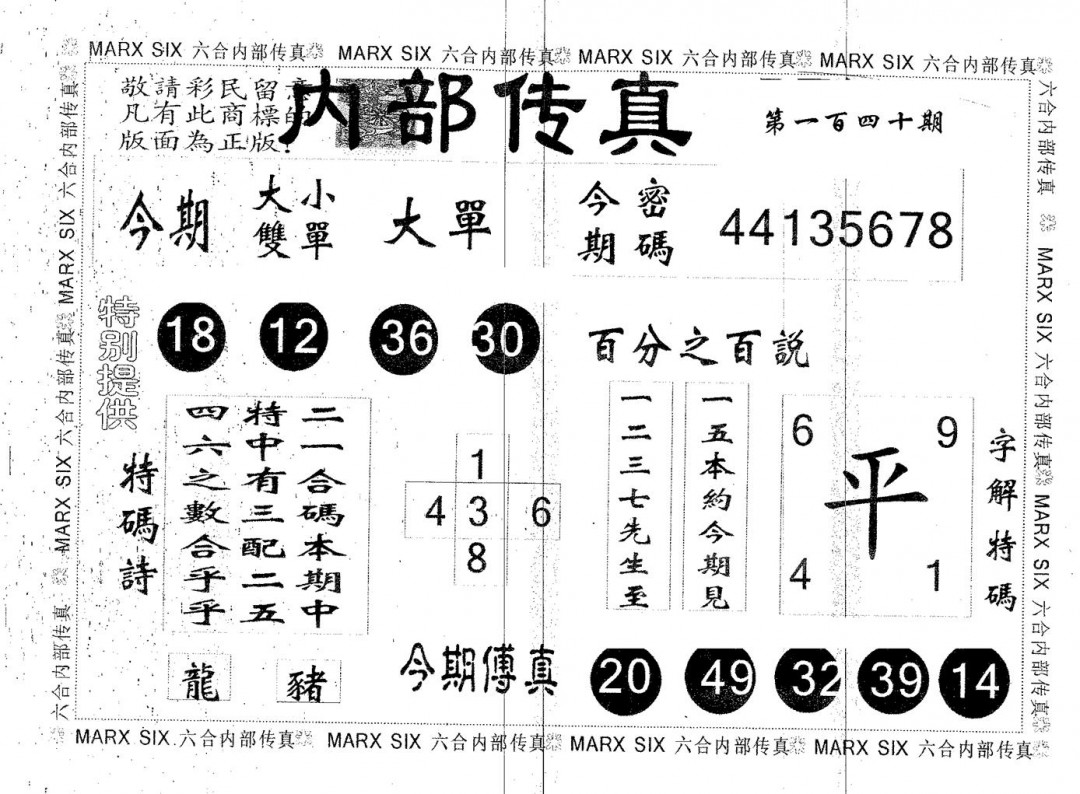 MARX SIX 六合内部传真 MARX SIX 六合内部传真 MARX SIX 六合内部传真 MARX SIX 六合内部传真
敬請彩民留意
凡有此商標的
版面為正版!
内部传真
第一百四十期
今期
大小
雙單
大單
今期
密碼
44135678
特别提供
18 12 36 30
百分之百説
特碼詩
二一合碼本期中
特中有三配二五
四六之數合乎乎
1
4 3 6
8
一五本約今期見
一二三七先生至
6 9
平
4 1
字解特碼
龍 豬
今期傳真
20 49 32 39 14
六合内部传真 MARX SIX 六合内部传真 MARX SIX 六合内部传真
六合内部传真 MARX SIX 六合内部传真 MARX SIX 六合内部传真
MARX SIX 六合内部传真 MARX SIX 六合内部传真 MARX SIX 六合内部传真 MARX SIX 六合内部传真